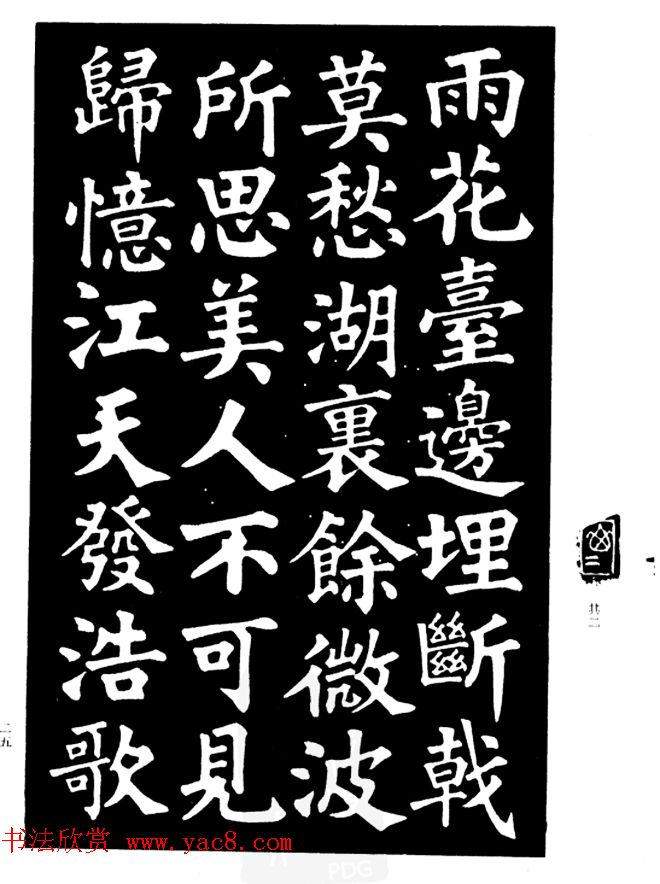 雨花臺邊埋斷戟
莫愁湖裏餘微波
所思美人不可見
歸憶江天發浩歌
共二
二五
书法欣赏 www.yac8.com
PDG